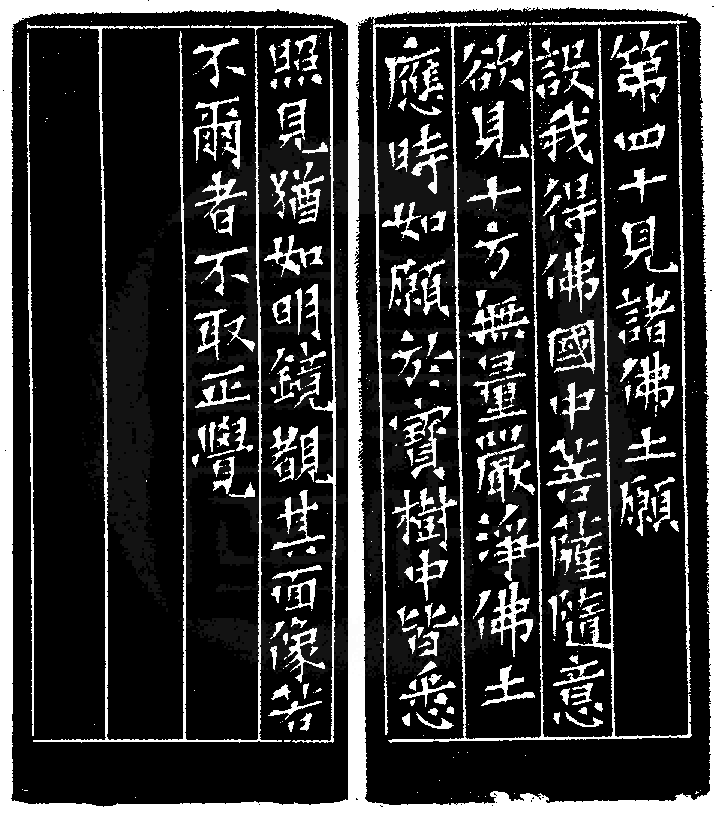 第四十見諸佛土願
設我得佛國中菩薩隨意
欲見十方無量嚴淨佛土
應時如願於寶樹中皆悉
照見猶如明鏡覩其面像若
不爾者不取正覺